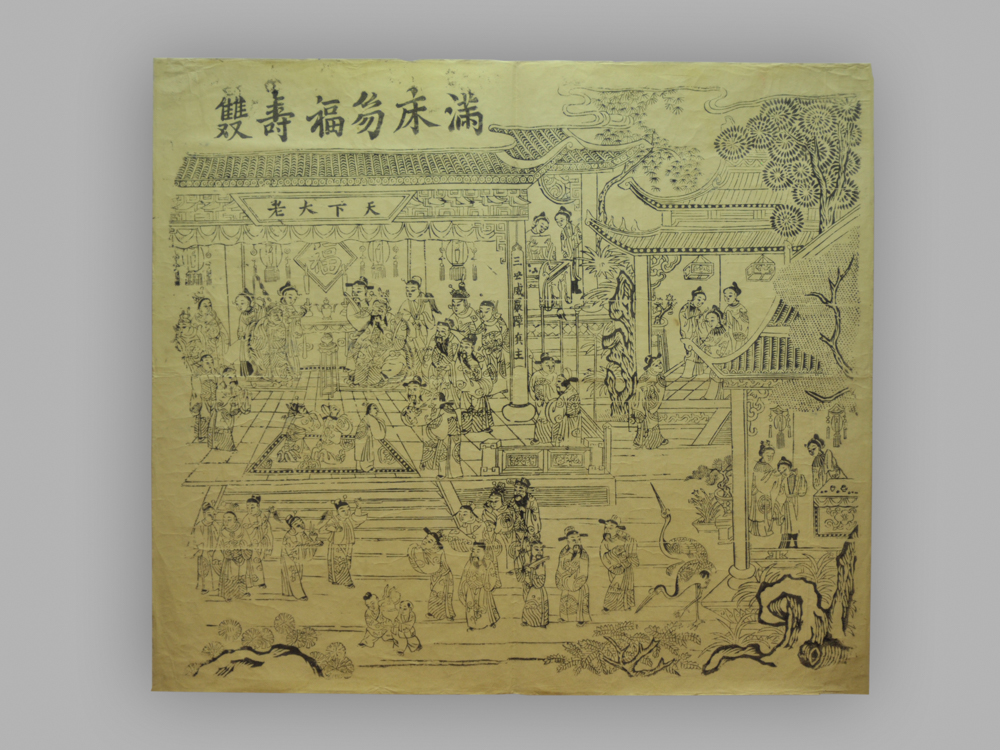 滿床笏福壽雙
天下大老
福
三世
主